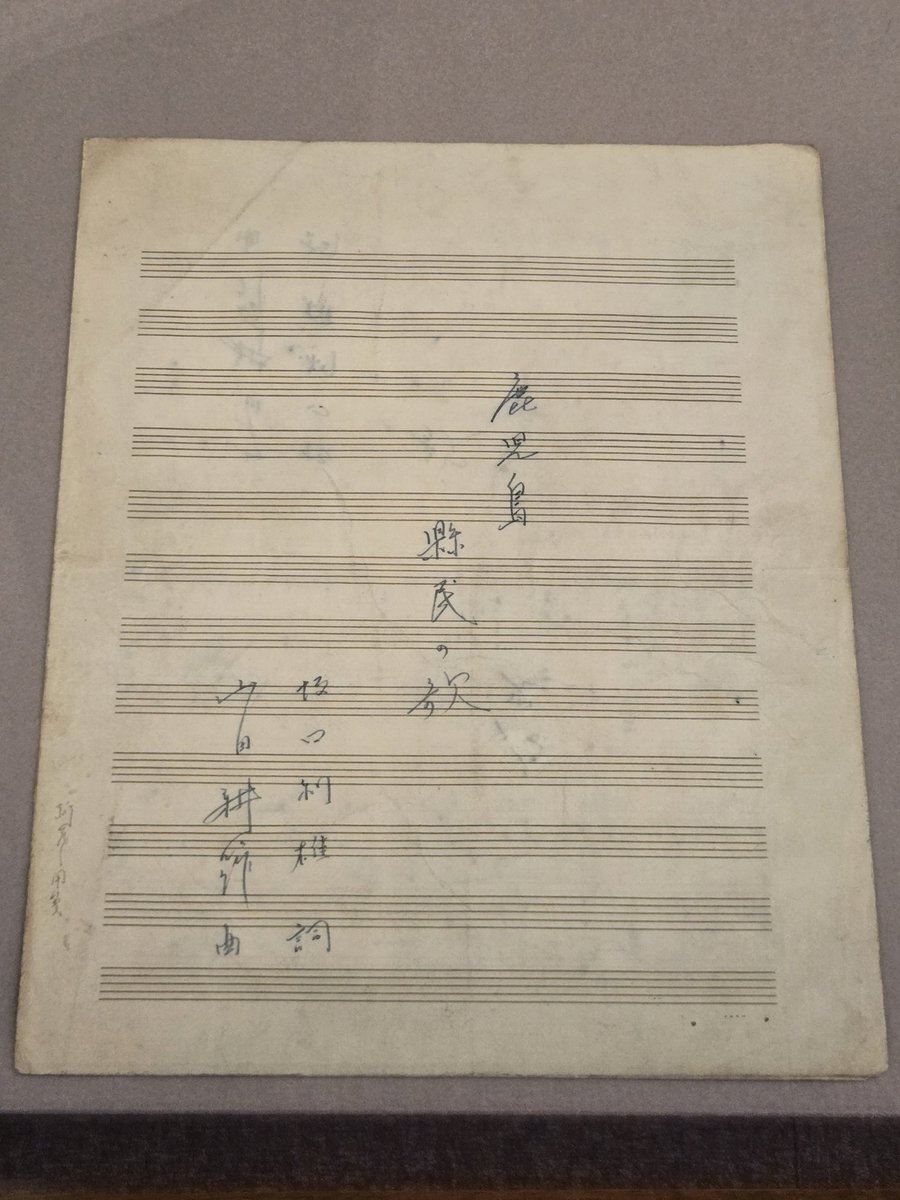 鹿児島
縣民の歌
坂口利雄 詞
山田耕筰 曲